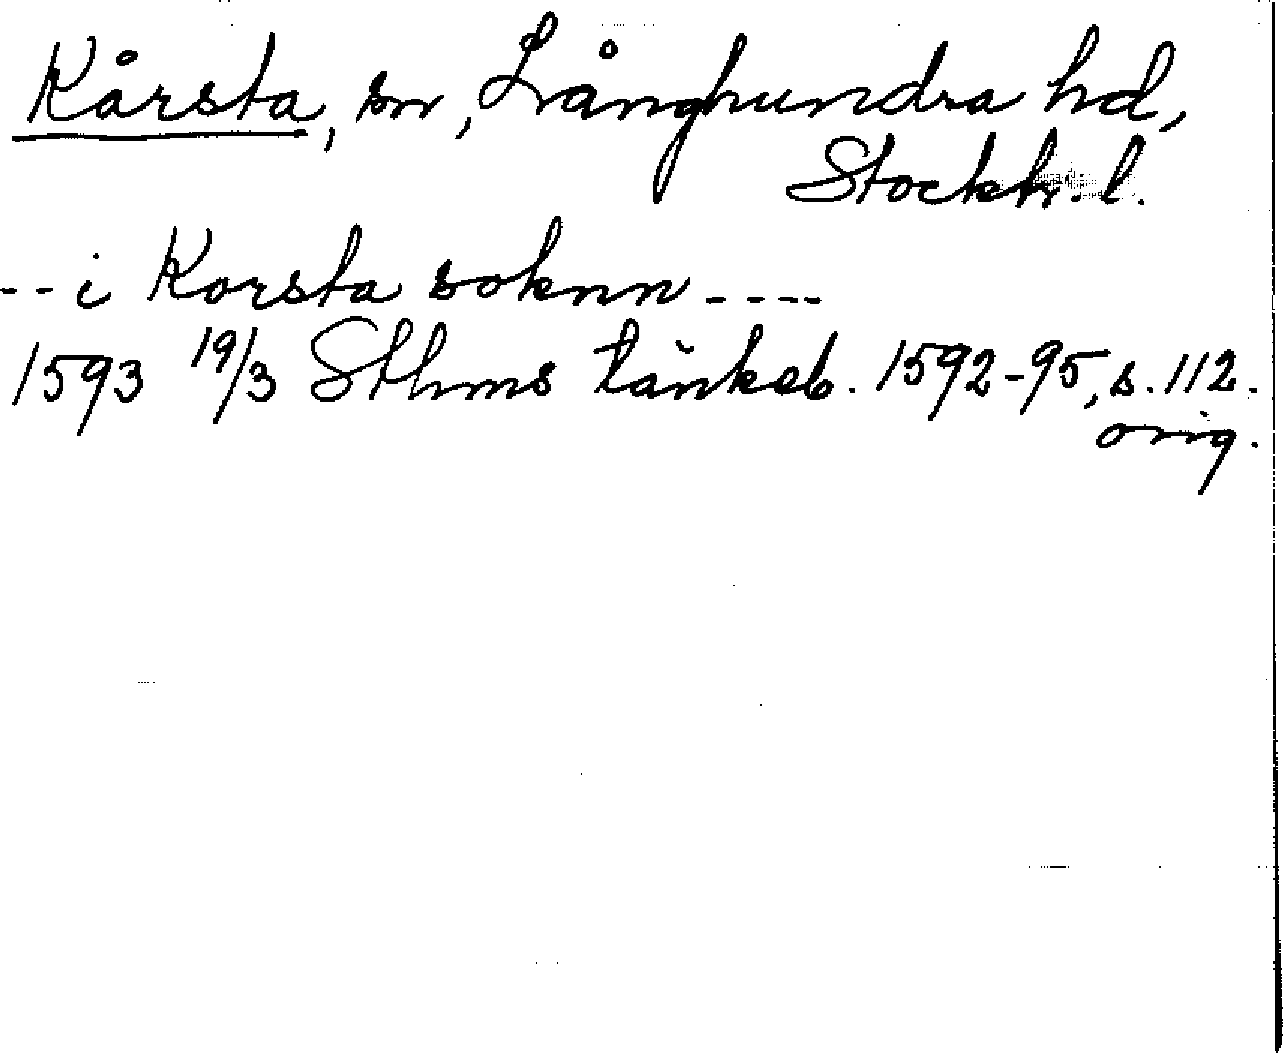 Kårsta, sn, Långhundra hd,
Stockh. l.
-- i Korsta soknn ----
1593 19/3 Sthms tänkeb. 1592-95, s. 112.
orig.